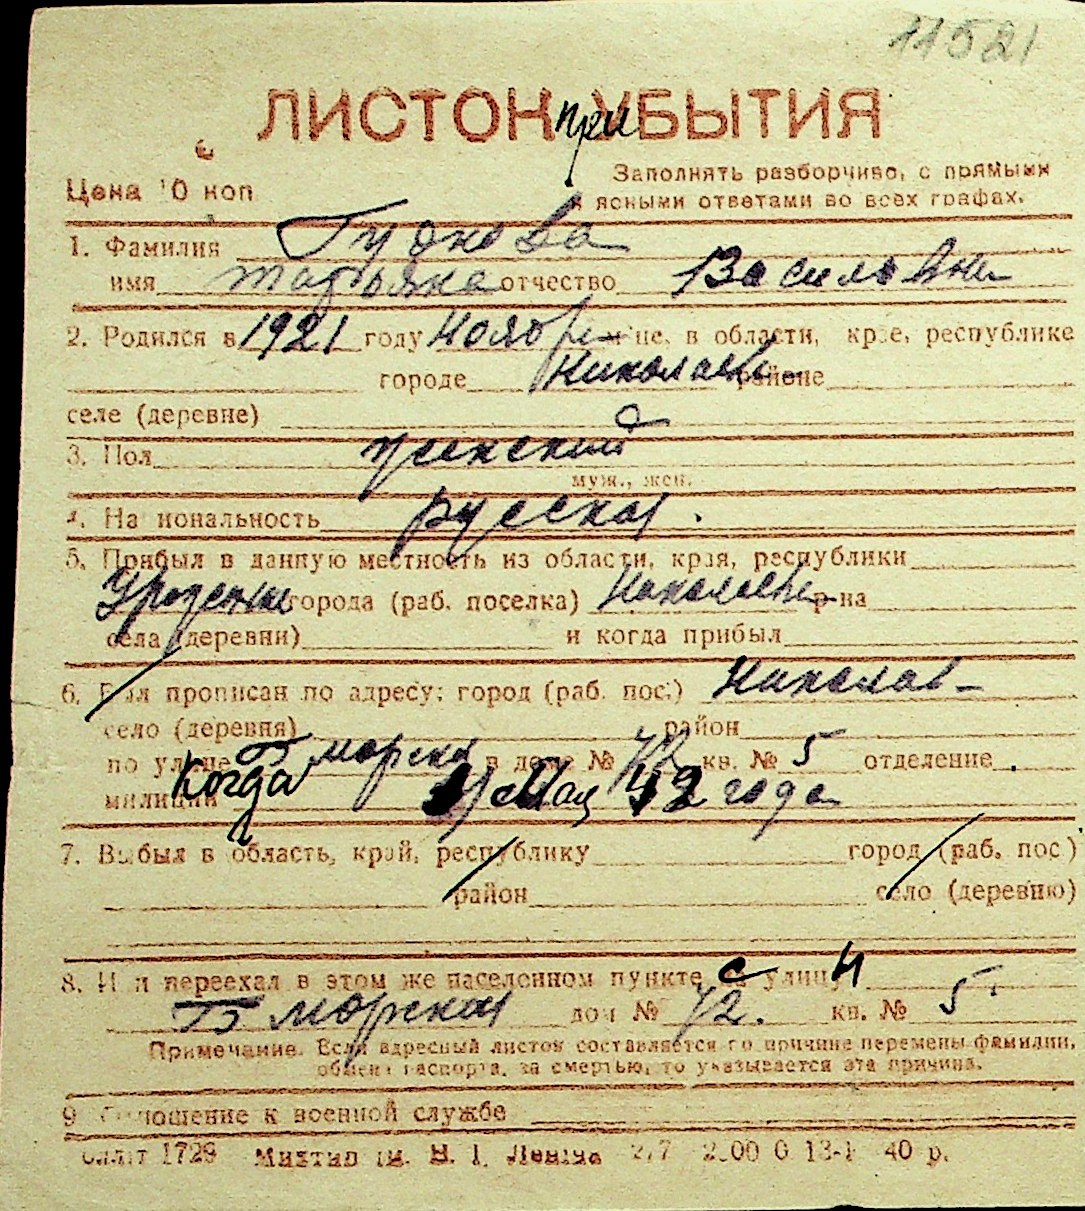 11521
ЛИСТОК при УБЫТИЯ
Цена 10 коп
Заполнять разборчиво, с прямыми
и ясными ответами во всех графах.
1. Фамилия Гуднова
имя Татьяна отчество Васильевна
2. Родился в 1921 году ноябре це, в области, крае, республике
городе Николаев районе
селе (деревне)
3. Пол женский
муж., жен.
4. На иональность русская.
5. Прибыл в данную местность из области, края, республики
Уроженка города (раб. поселка) Николаев р на
села (деревни) и когда прибыл
6. Был прописан по адресу: город (раб. пос.) Николаев
село (деревня) район
по улице Б морская в доме № 72 кв. № 5 отделение
милиции Когда Мая 42 года
7. Выбыл в область, край, республику город (раб. пос)
район село (деревню)
8. И и переехал в этом же населенном пункте с улицы
Б морская дом № 72. кв. № 5.
Примечание. Если адресный листок составляется по причине перемены фамилии,
обмена паспорта, за смертью, то указывается эта причина.
9 Отношение к военной службе
1729 им. В. І. Леніна 2/7 2.00 0 13-1 40 р.